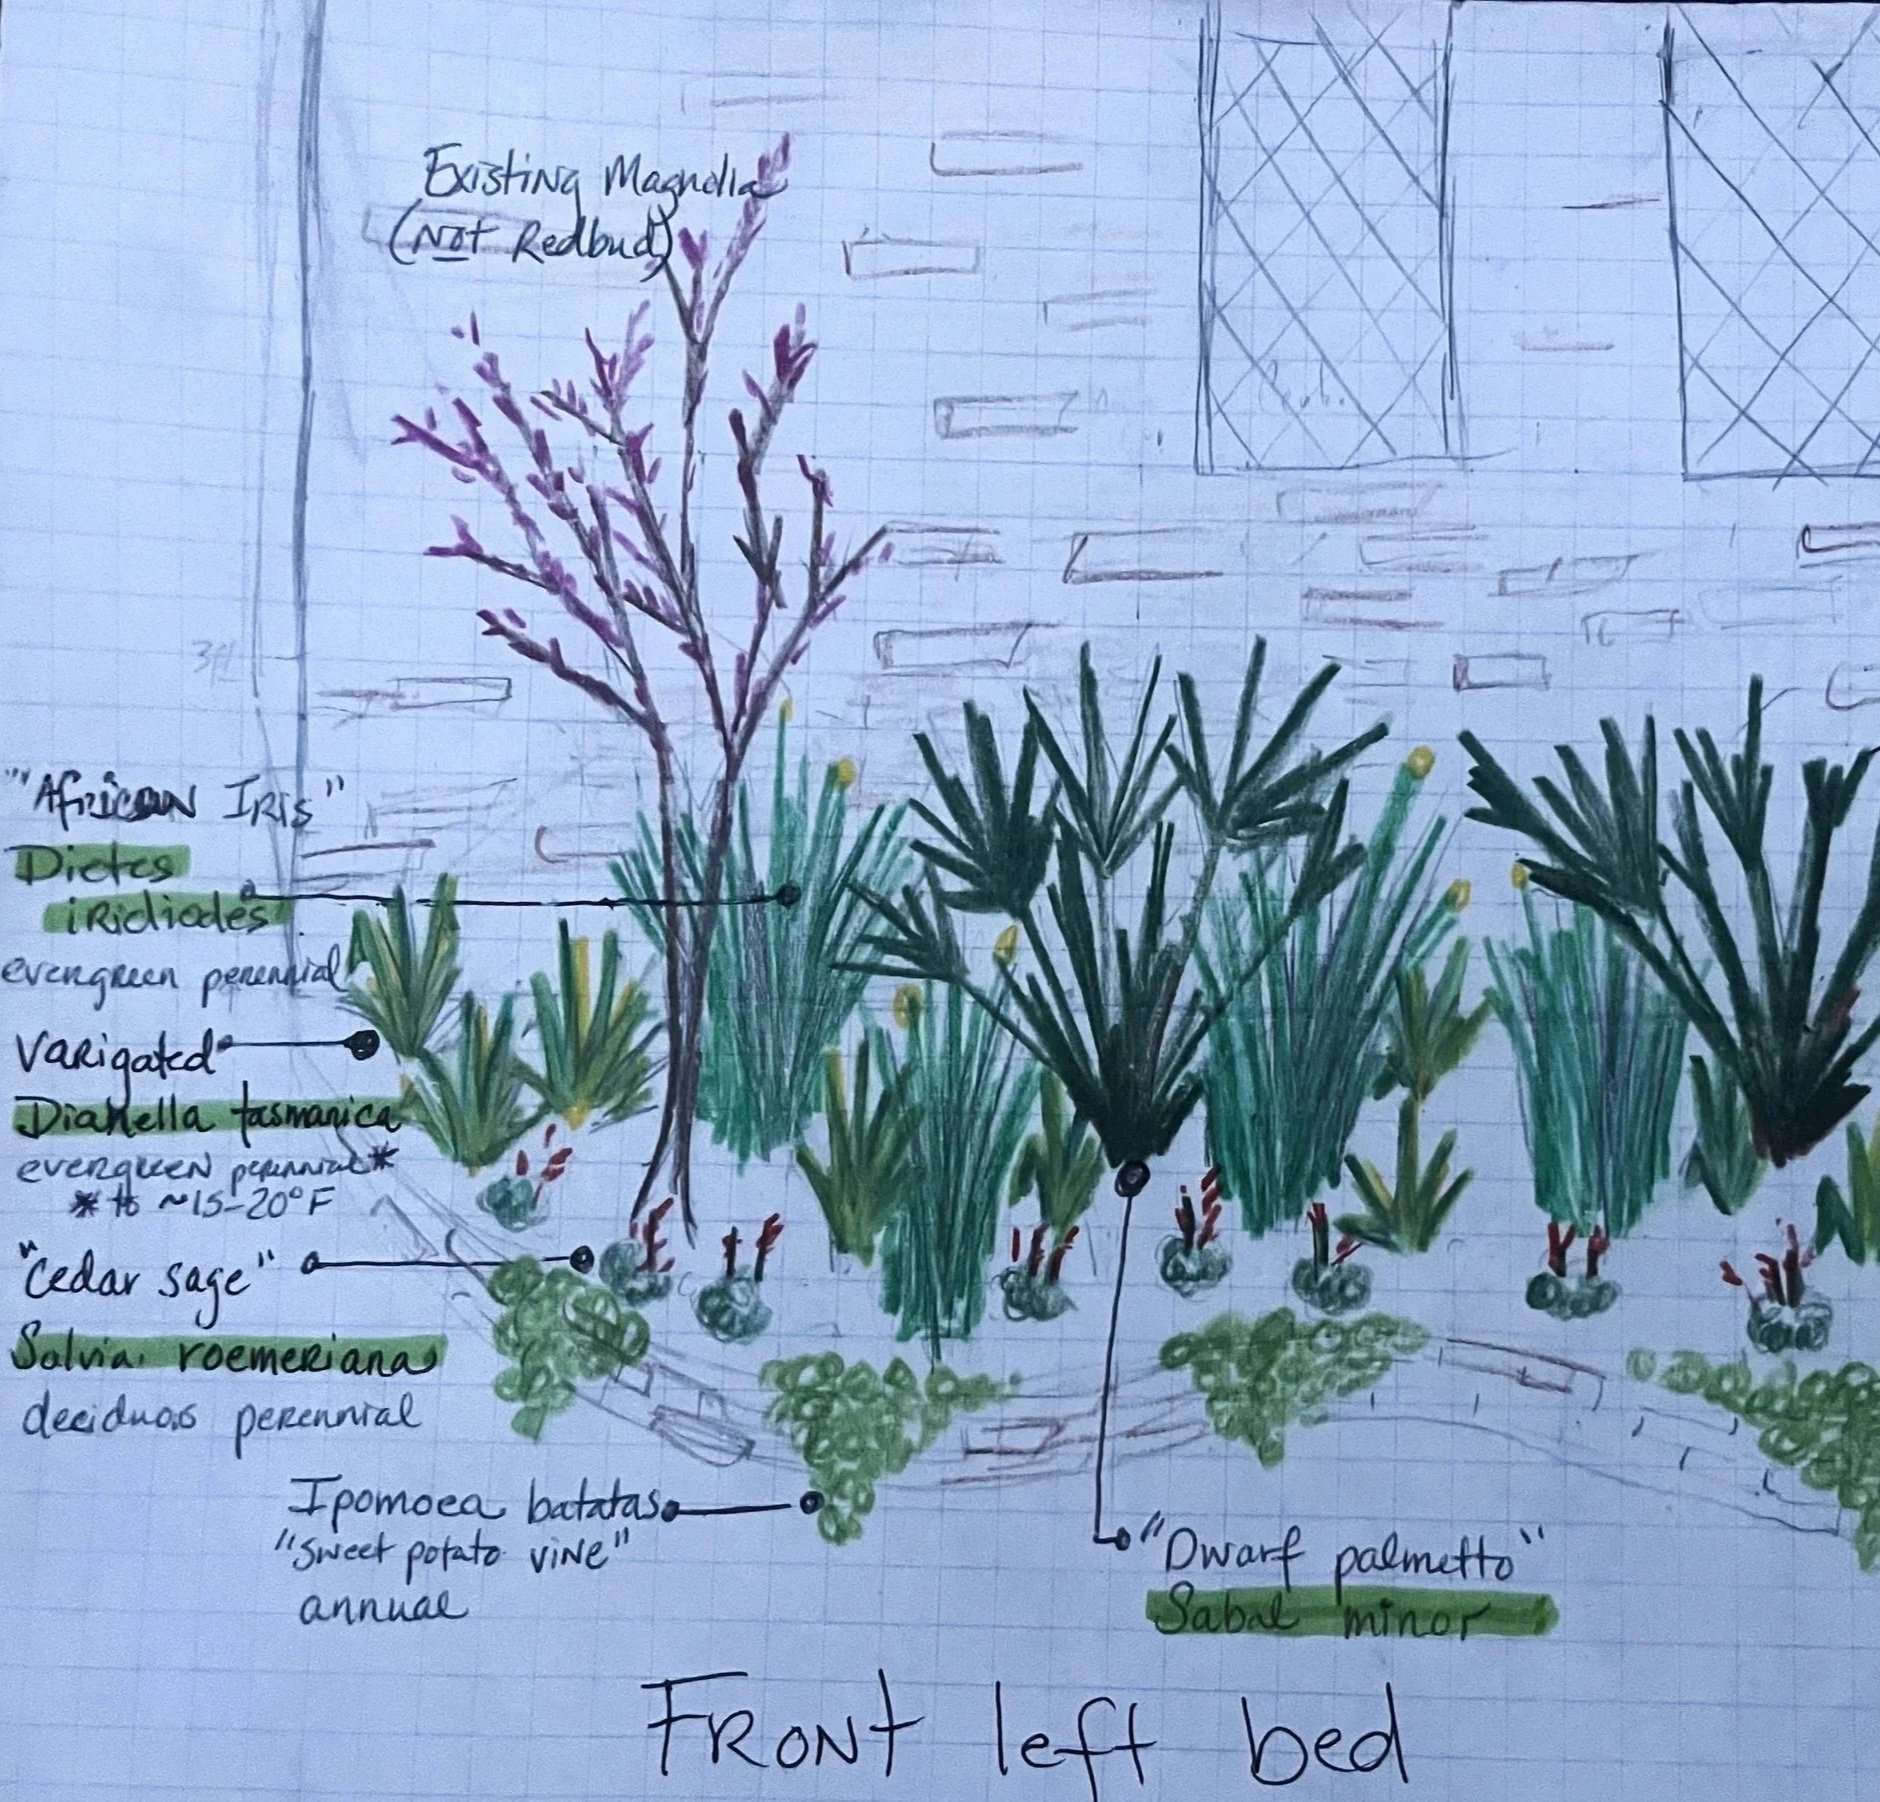 Existing Magnolia
(Not Redbud)
3ft
"African Iris"
Dietes
iridiodes
evergreen perennial
Varigated
Dianella tasmanica
evergreen perennial*
* to ~15-20°F
"Cedar sage"
Salvia roemeriana
deciduos perennial
Ipomoea batatas
"sweet potato vine"
annual
"Dwarf palmetto"
Sabal minor
Front left bed